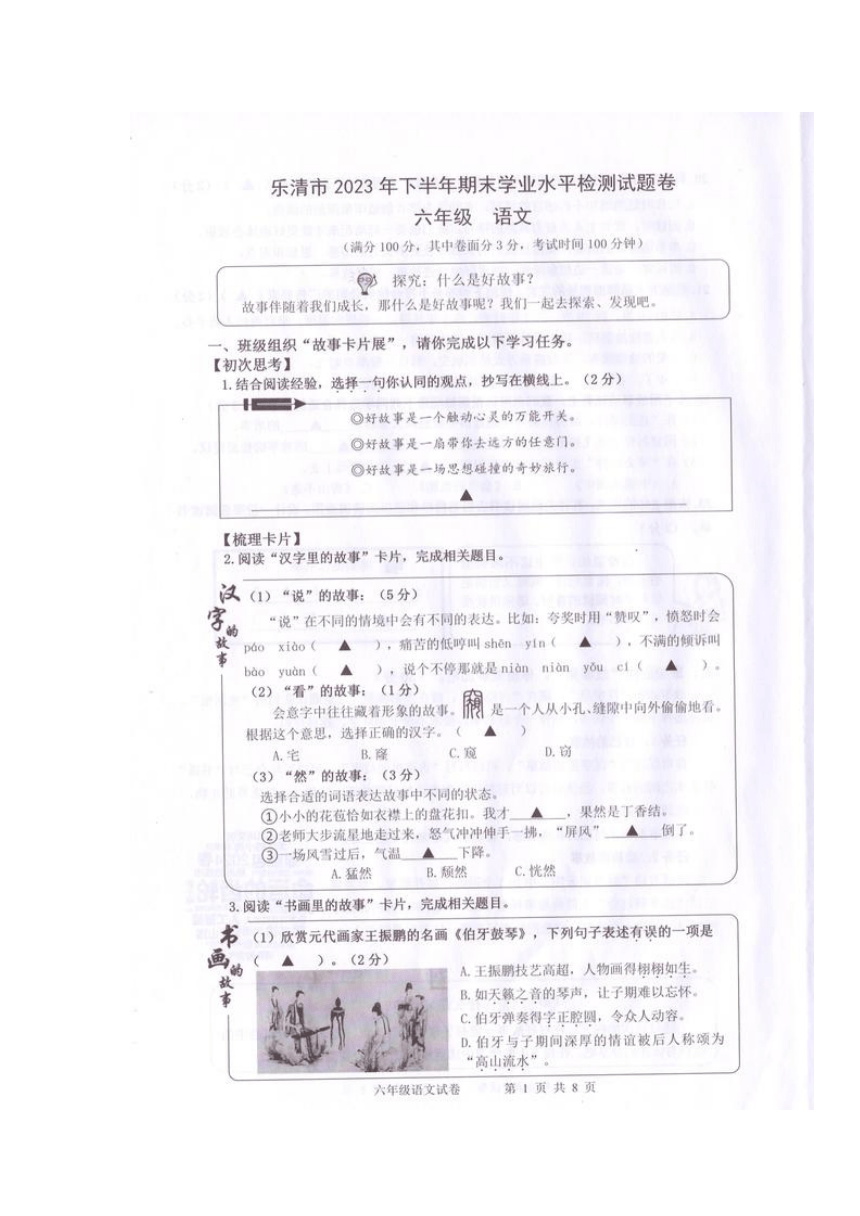 乐清市 2023 年下半年期末学业水平检测试题卷
六年级 语文
（满分 100 分，其中卷面分 3 分，考试时间 100 分钟）
探究：什么是好故事？
故事伴随着我们成长，那什么是好故事呢？我们一起去探索、发现吧。
一、班级组织“故事卡片展”，请你完成以下学习任务。
【初次思考】
1.结合阅读经验，选择一句你认同的观点，抄写在横线上。（2 分）
◎好故事是一个触动心灵的万能开关。
◎好故事是一扇带你去远方的任意门。
◎好故事是一场思想碰撞的奇妙旅行。
▲
【梳理卡片】
2.阅读“汉字里的故事”卡片，完成相关题目。
汉字的故事
（1）“说”的故事：（5 分）
“说”在不同的情境中会有不同的表达。比如：夸奖时用“赞叹”，愤怒时会
páo xiào（ ▲ ），痛苦的低哼叫 shēn yín（ ▲ ），不满的倾诉叫
bào yuàn（ ▲ ），说个不停那就是 niàn niàn yǒu cí（ ▲ ）。
（2）“看”的故事：（1 分）
会意字中往往藏着形象的故事。 是一个人从小孔、缝隙中向外偷偷地看。
根据这个意思，选择正确的汉字。（ ▲ ）
A.宅 B.窿 C.窥 D.窃
（3）“然”的故事：（3 分）
选择合适的词语表达故事中不同的状态。
①小小的花苞恰如衣襟上的盘花扣。我才 ▲ ，果然是丁香结。
②老师大步流星地走过来，怒气冲冲伸手一拂，“屏风” ▲ 倒了。
③一场风雪过后，气温 ▲ 下降。
A.猛然 B.颓然 C.恍然
3.阅读“书画里的故事”卡片，完成相关题目。
书画的故事
（1）欣赏元代画家王振鹏的名画《伯牙鼓琴》，下列句子表述有误的一项是
（ ▲ ）。（2 分）
A.王振鹏技艺高超，人物画得栩栩如生。
B.如天籁之音的琴声，让子期难以忘怀。
C.伯牙弹奏得字正腔圆，令众人动容。
D.伯牙与子期间深厚的情谊被后人称颂为
“高山流水”。
六年级语文试卷 第 1 页 共 8 页